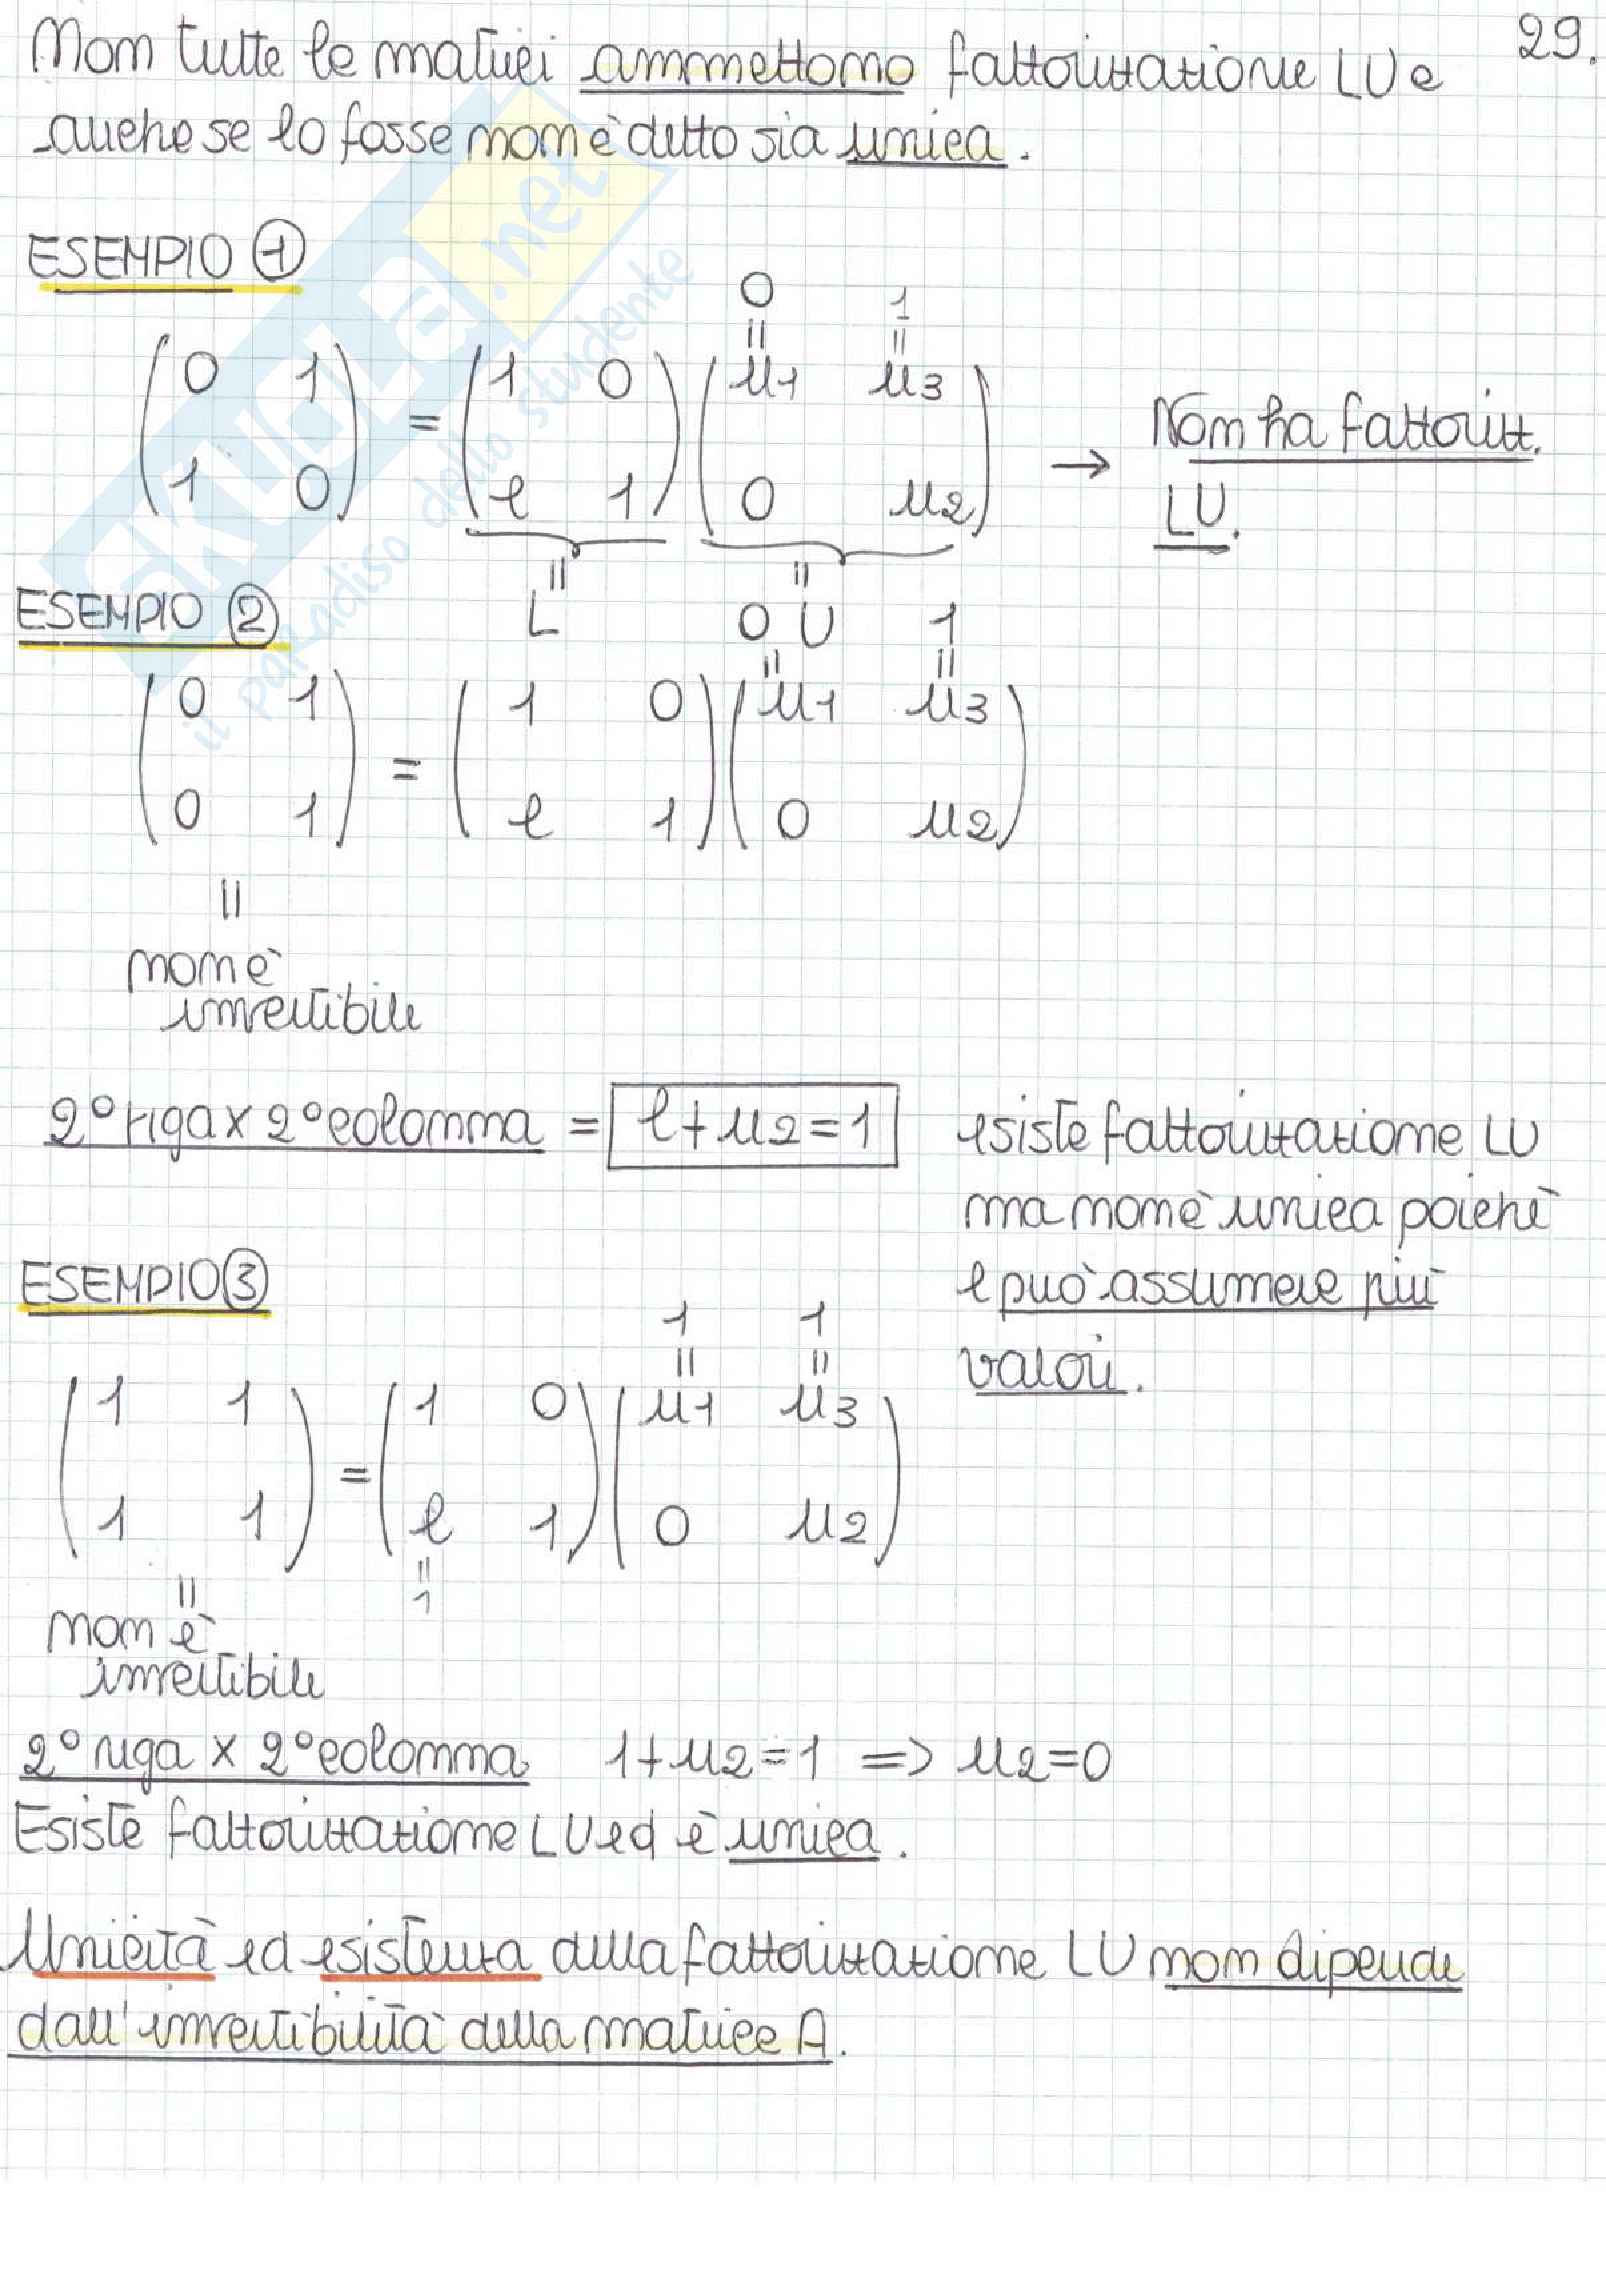 29.
Non tutte le matrici ammettono fattorizzazione LU e
anche se lo fosse non è detto sia unica.
ESEMPIO 1
0 1
= =
( 0 1 ) = ( 1 0 ) ( u1 u3 ) → Non ha fattorizz.
( 1 0 ) ( l 1 ) ( 0 u2 ) LU.
= =
L U
ESEMPIO 2
0 1
= =
( 0 1 ) = ( 1 0 ) ( u1 u3 )
( 0 1 ) ( l 1 ) ( 0 u2 )
=
non è
invertibile
2° riga x 2° colonna = l+u2=1 esiste fattorizzazione LU
ma non è unica poichè
l può assumere più
valori.
ESEMPIO 3
1 1
= =
( 1 1 ) = ( 1 0 ) ( u1 u3 )
( 1 1 ) ( l 1 ) ( 0 u2 )
= =
1
non è
invertibile
2° riga x 2° colonna 1+u2=1 => u2=0
Esiste fattorizzazione LU ed è unica.
Unicità ed esistenza della fattorizzazione LU non dipende
dall'invertibilità della matrice A.
SKUOLA.net
il paradiso dello studente